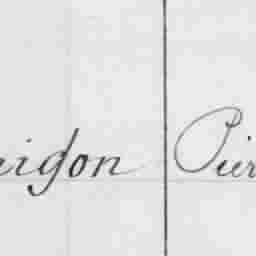 eigon Pier